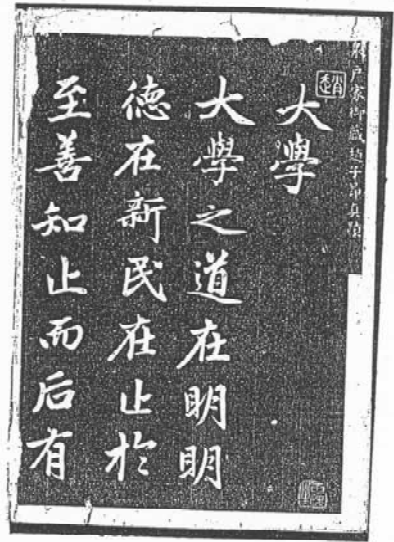 大學
大學之道在明明
德在新民在止於
至善知止而后有